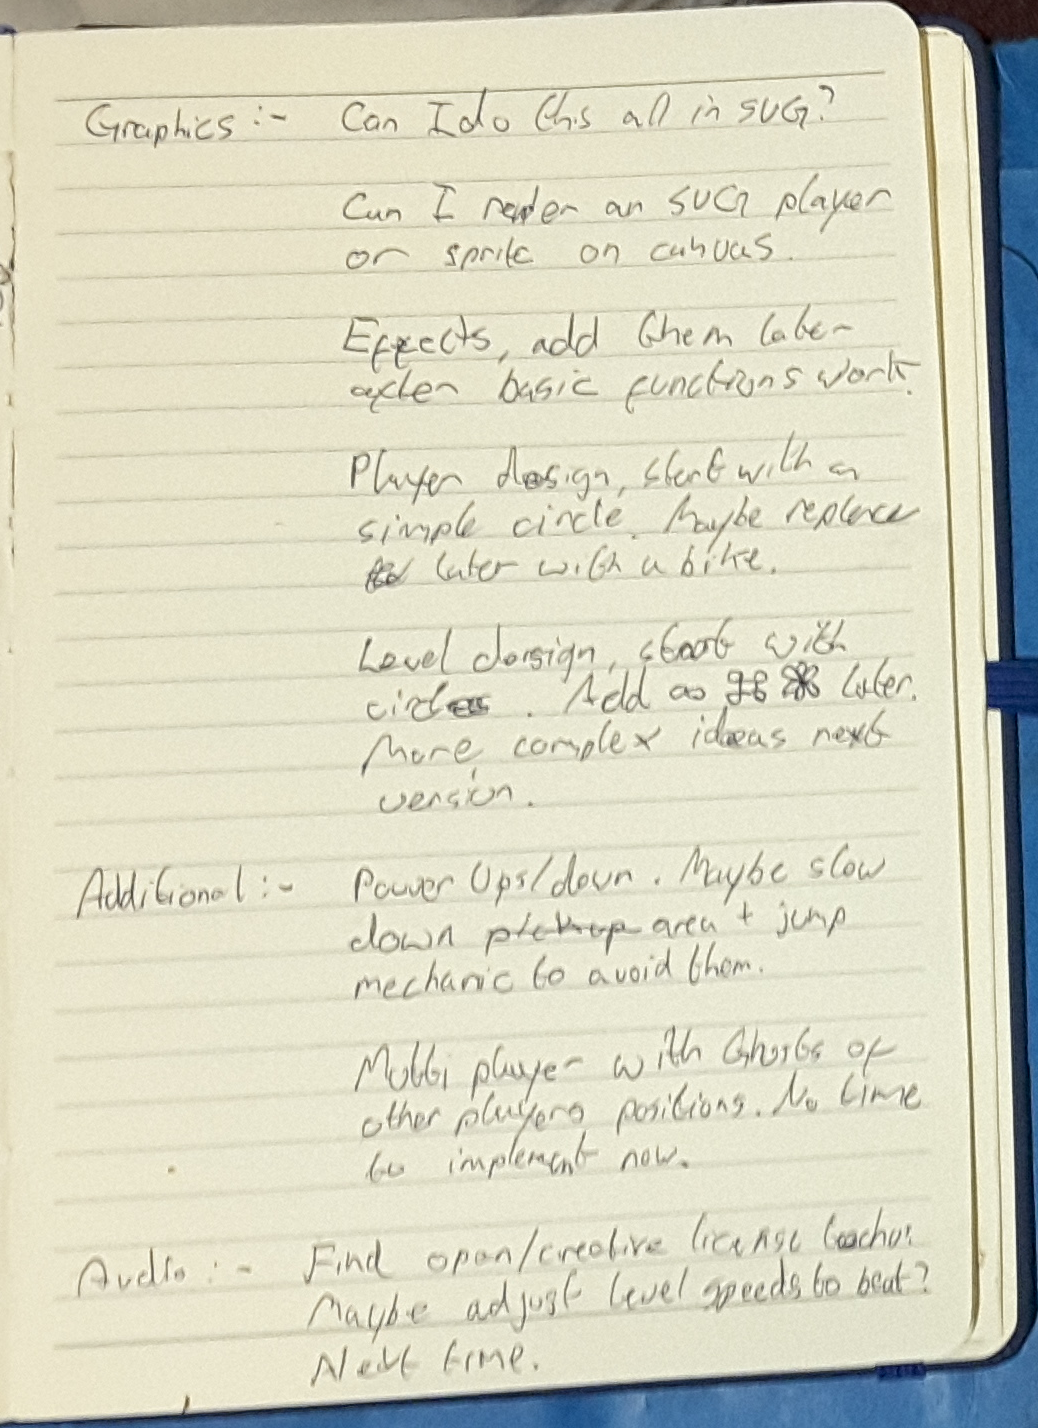 Graphics :- Can I do this all in SVG?
Can I render an SVG player
or sprite on canvas.
Effects, add them later
after basic functions work.
Player design, start with a
simple circle. Maybe replace
later with a bike.
Level design, start with
circles. Add later.
More complex ideas next
version.
Additional :- Power Ups/down. Maybe slow
down pickup area + jump
mechanic to avoid them.
Multi player with Ghosts of
other players positions. No time
to implement now.
Audio :- Find open/creative license
Maybe adjust level speeds to beat?
Next time.